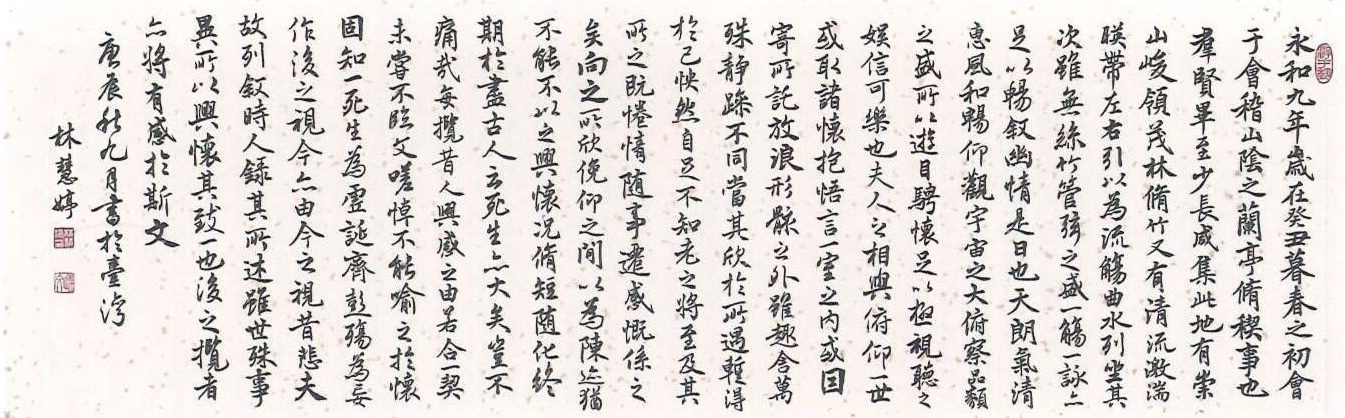 永和九年歲在癸丑暮春之初會
于會稽山陰之蘭亭脩稧事也
羣賢畢至少長咸集此地有崇
山峻領茂林脩竹又有清流激湍
暎帶左右引以為流觴曲水列坐其
次雖無絲竹管弦之盛一觴一詠亦
足以暢敘幽情是日也天朗氣清
惠風和暢仰觀宇宙之大俯察品類
之盛所以遊目騁懷足以極視聽之
娛信可樂也夫人之相與俯仰一世
或取諸懷抱悟言一室之內或因
寄所託放浪形骸之外雖趣舍萬
殊靜躁不同當其欣於所遇暫得
於己怏然自足不知老之將至及其
所之既惓情隨事遷感慨係之
矣向之所欣俛仰之間以為陳迹猶
不能不以之興懷況脩短隨化終
期於盡古人云死生亦大矣豈不
痛哉每攬昔人興感之由若合一契
未嘗不臨文嗟悼不能喻之於懷
固知一死生為虛誕齊彭殤為妄
作後之視今亦由今之視昔悲夫
故列敘時人錄其所述雖世殊事
異所以興懷其致一也後之攬者
亦將有感於斯文
庚辰秋九月書於臺灣
林慧婷